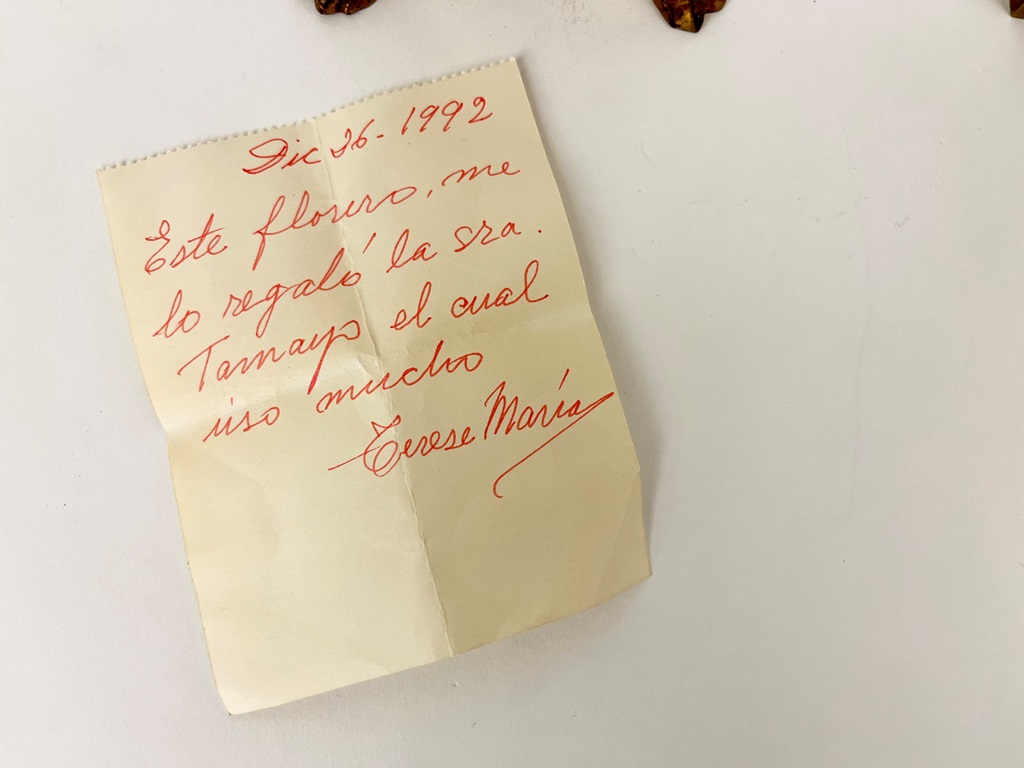 Dic 26-1992
Este florero, me
lo regaló la sra.
Tamayo el cual
úso mucho
Terese María